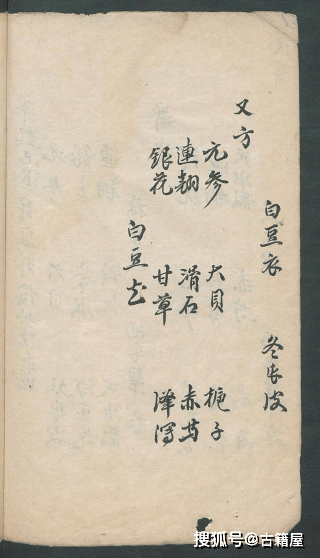 白豆衣 冬瓜皮
又方
元参 大貝 梔子
連翹 滑石 赤芍
銀花 甘草 澤瀉
白豆衣
搜狐号@古籍屋